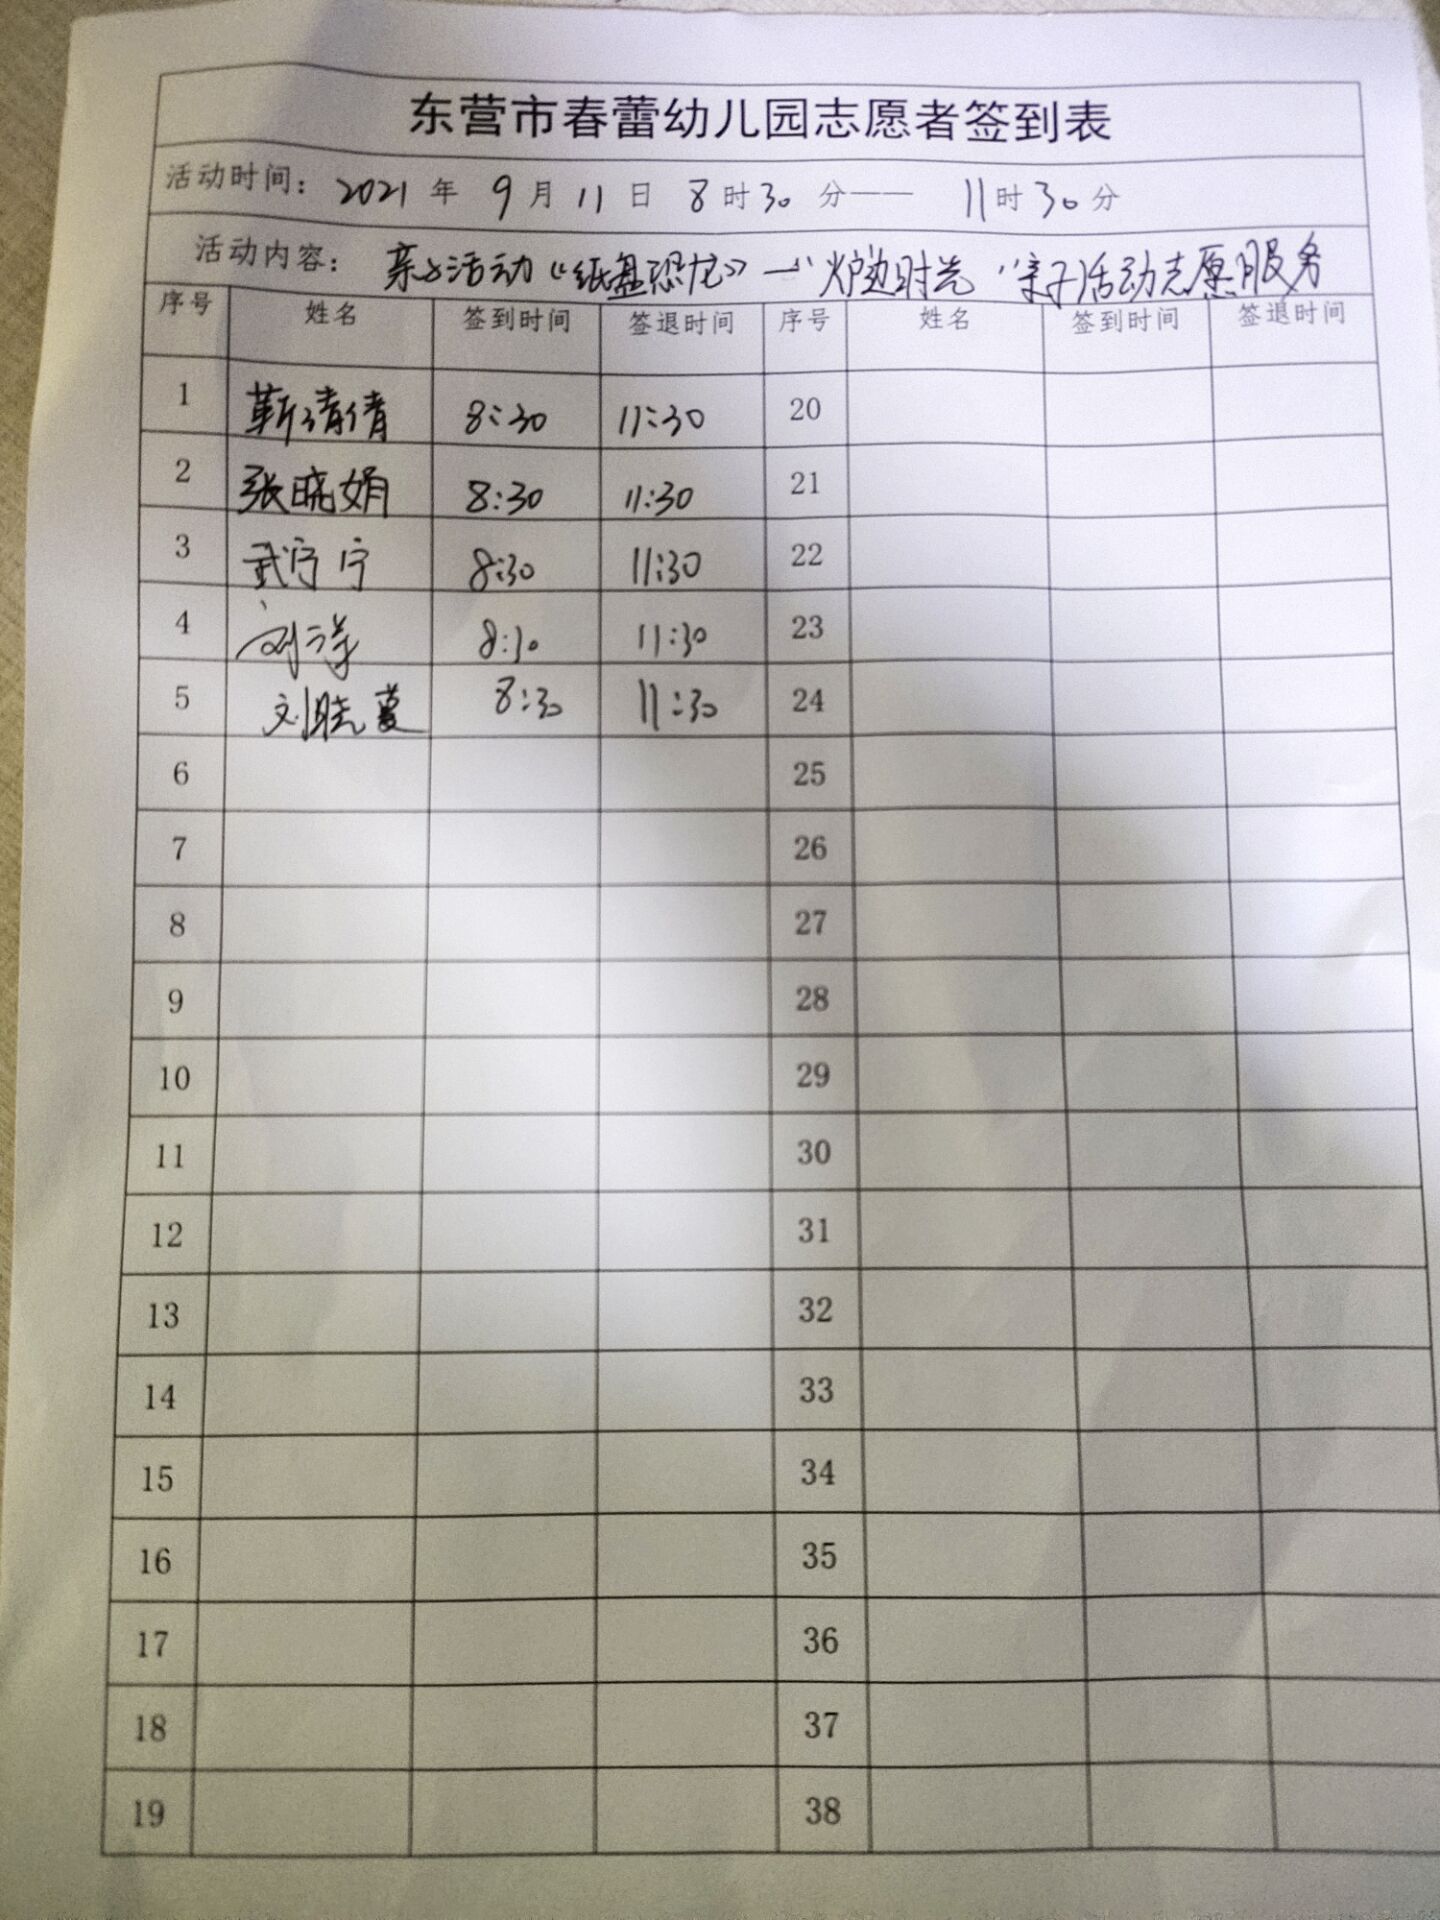 东营市春蕾幼儿园志愿者签到表
活动时间：2021 年 9 月 11 日 8 时 30 分—— 11 时 30 分
活动内容：亲子活动《纸盘恐龙》—“炉边时光”亲子活动志愿服务
序号 姓名 签到时间 签退时间 序号 姓名 签到时间 签退时间
1 靳清倩 8:30 11:30 20
2 张晓娟 8:30 11:30 21
3 武宁宁 8:30 11:30 22
4 8:30 11:30 23
5 刘晓蔓 8:30 11:30 24
6 25
7 26
8 27
9 28
10 29
11 30
12 31
13 32
14 33
15 34
16 35
17 36
18 37
19 38